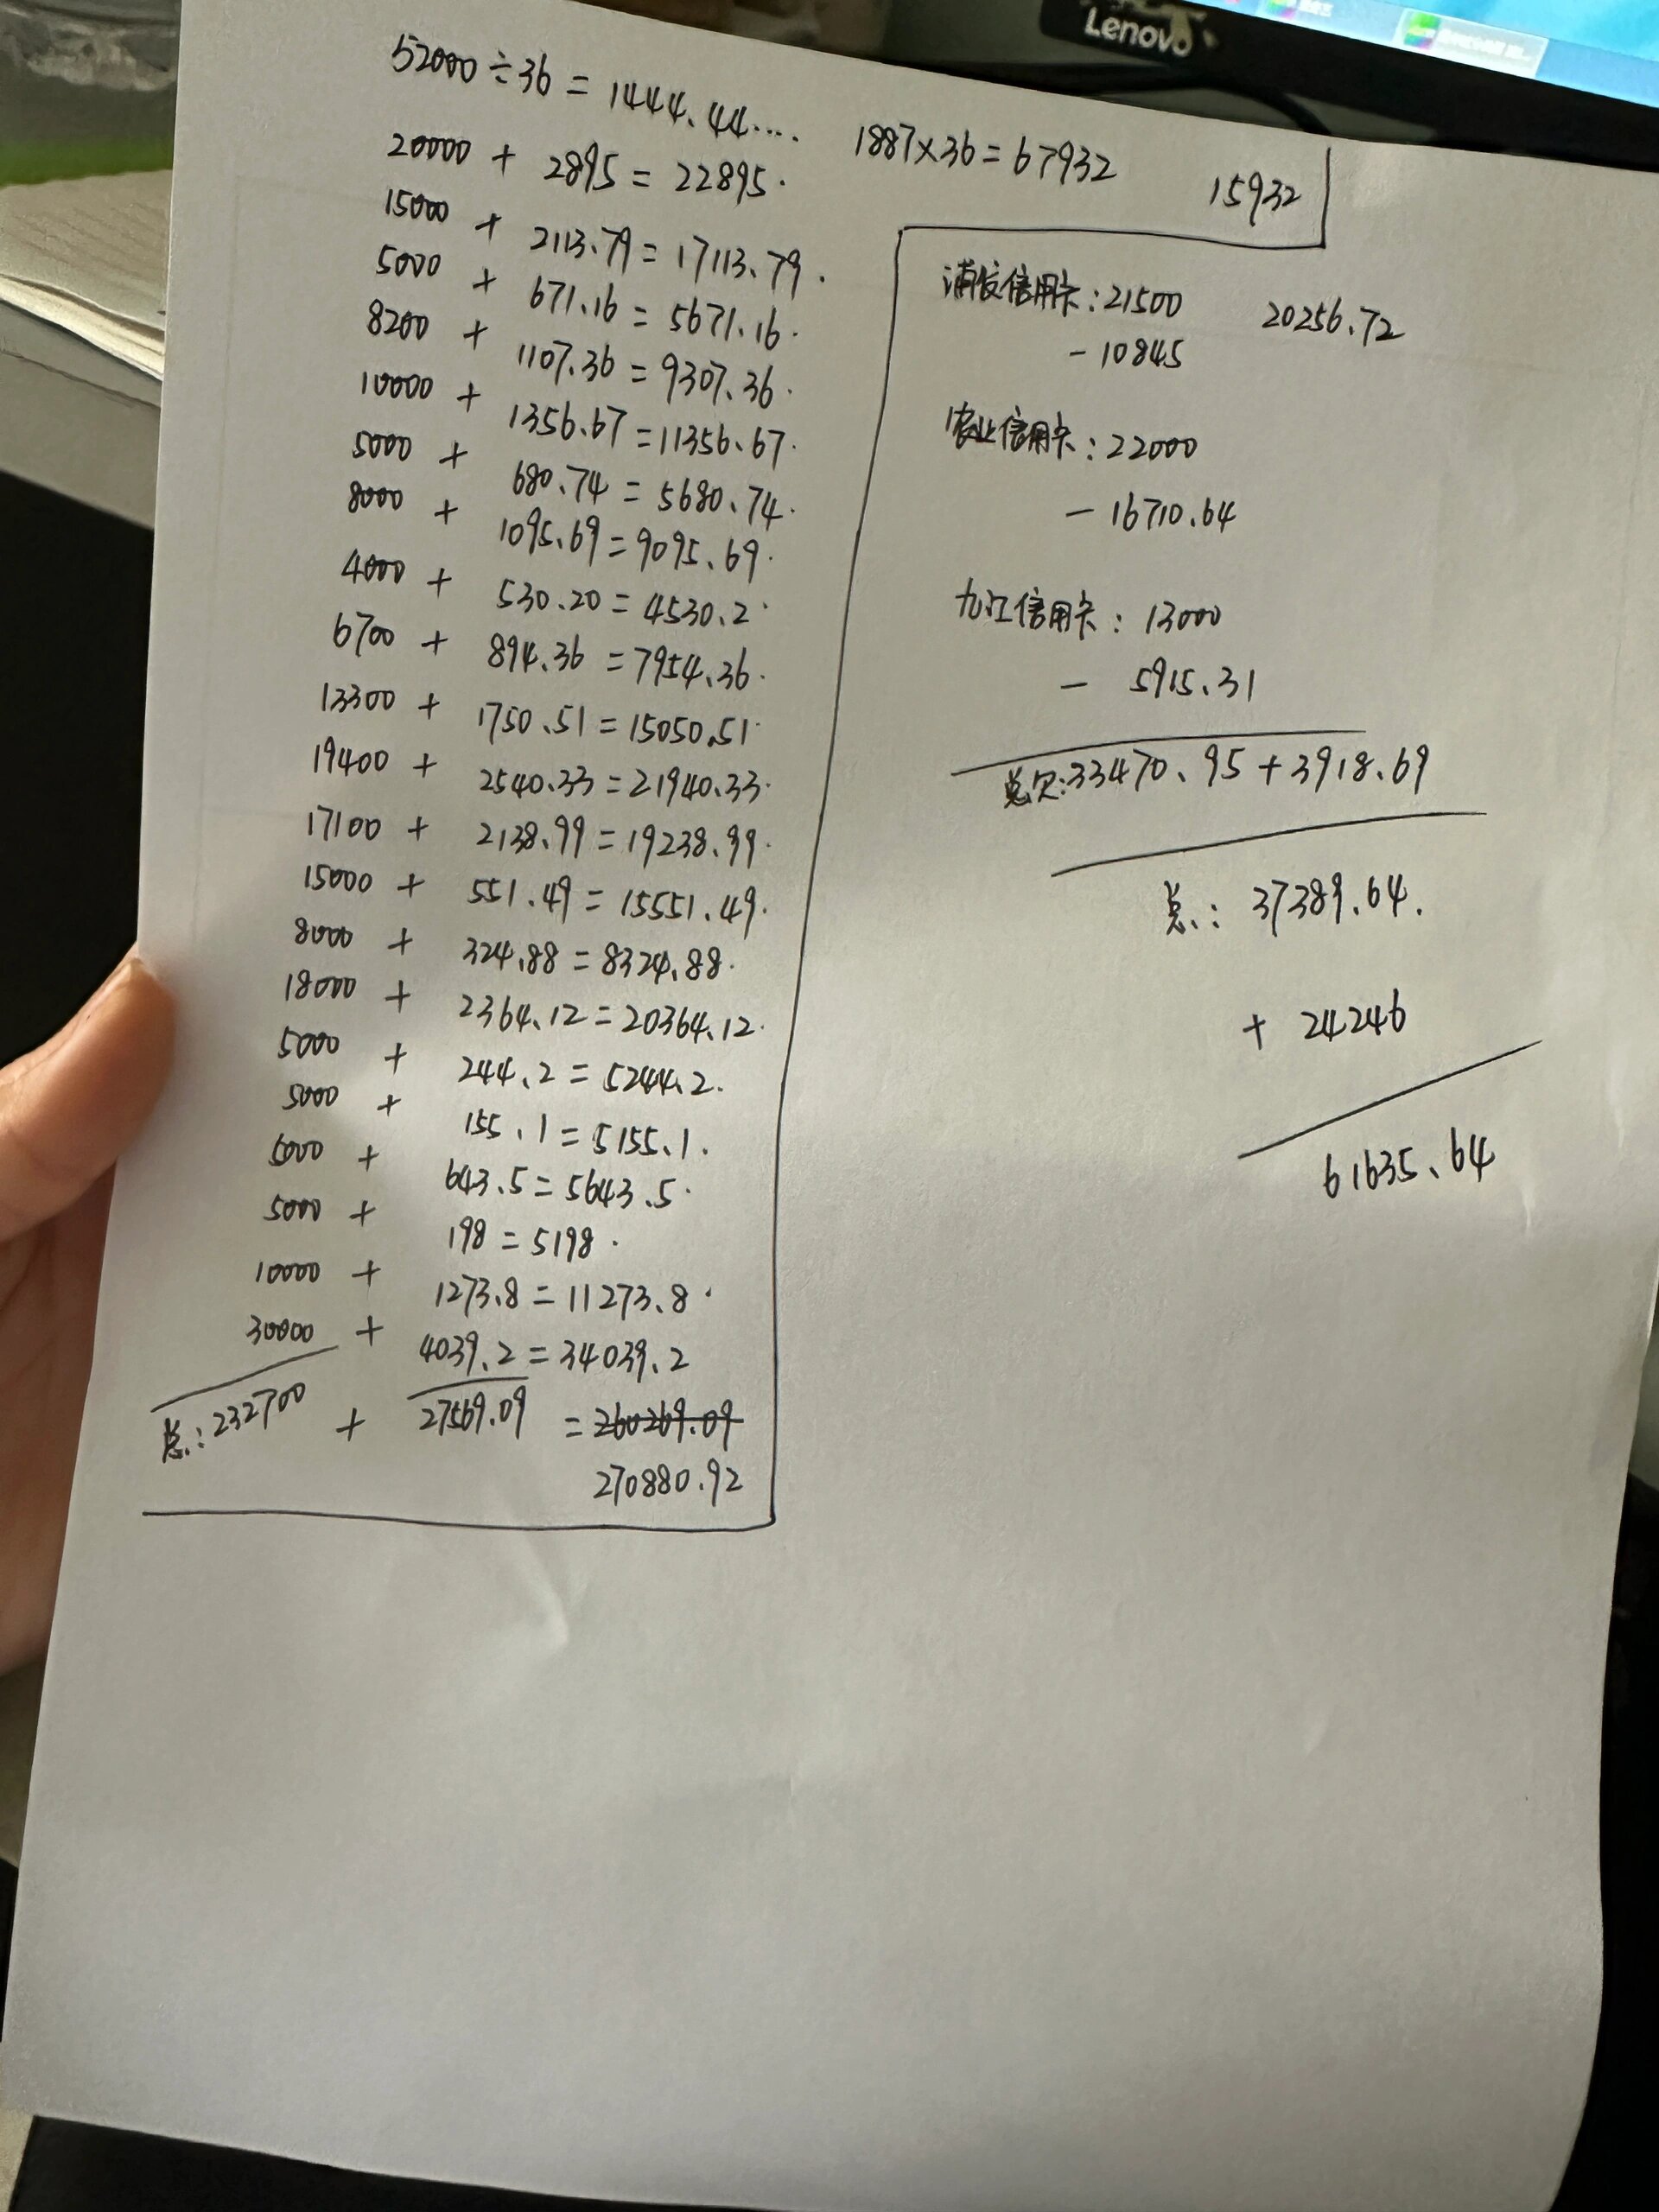 Lenovo
52000÷36=1444.44....
1887×36=67932
15932
20000 + 2895=22895.
15000 + 2113.79=17113.79.
5000 + 671.16=5671.16.
8200 + 1107.36=9307.36.
10000 + 1356.67=11356.67.
5000 + 680.74=5680.74.
8000 + 1095.69=9095.69.
4000 + 530.20=4530.2.
6700 + 894.36=7954.36.
13300 + 1750.51=15050.51.
19400 + 2540.33=21940.33.
17100 + 2138.99=19238.99.
15000 + 551.49=15551.49.
8000 + 324.88=8324.88.
18000 + 2364.12=20364.12.
5000 + 244.2=5244.2.
5000 + 155.1=5155.1.
5000 + 643.5=5643.5.
5000 + 198=5198.
10000 + 1273.8=11273.8.
30000 + 4039.2=34039.2
总:232700 + 27569.09 =260269.09
270880.92
浦发信用卡:21500 20256.72
-10845
农业信用卡:22000
-16710.64
九江信用卡:13000
- 5915.31
总欠:33470.95+3918.69
总:37389.64.
+ 24246
61635.64